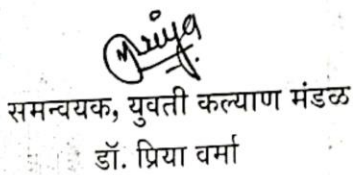 Priya
समन्वयक, युवती कल्याण मंडळ
डॉ. प्रिया वर्मा